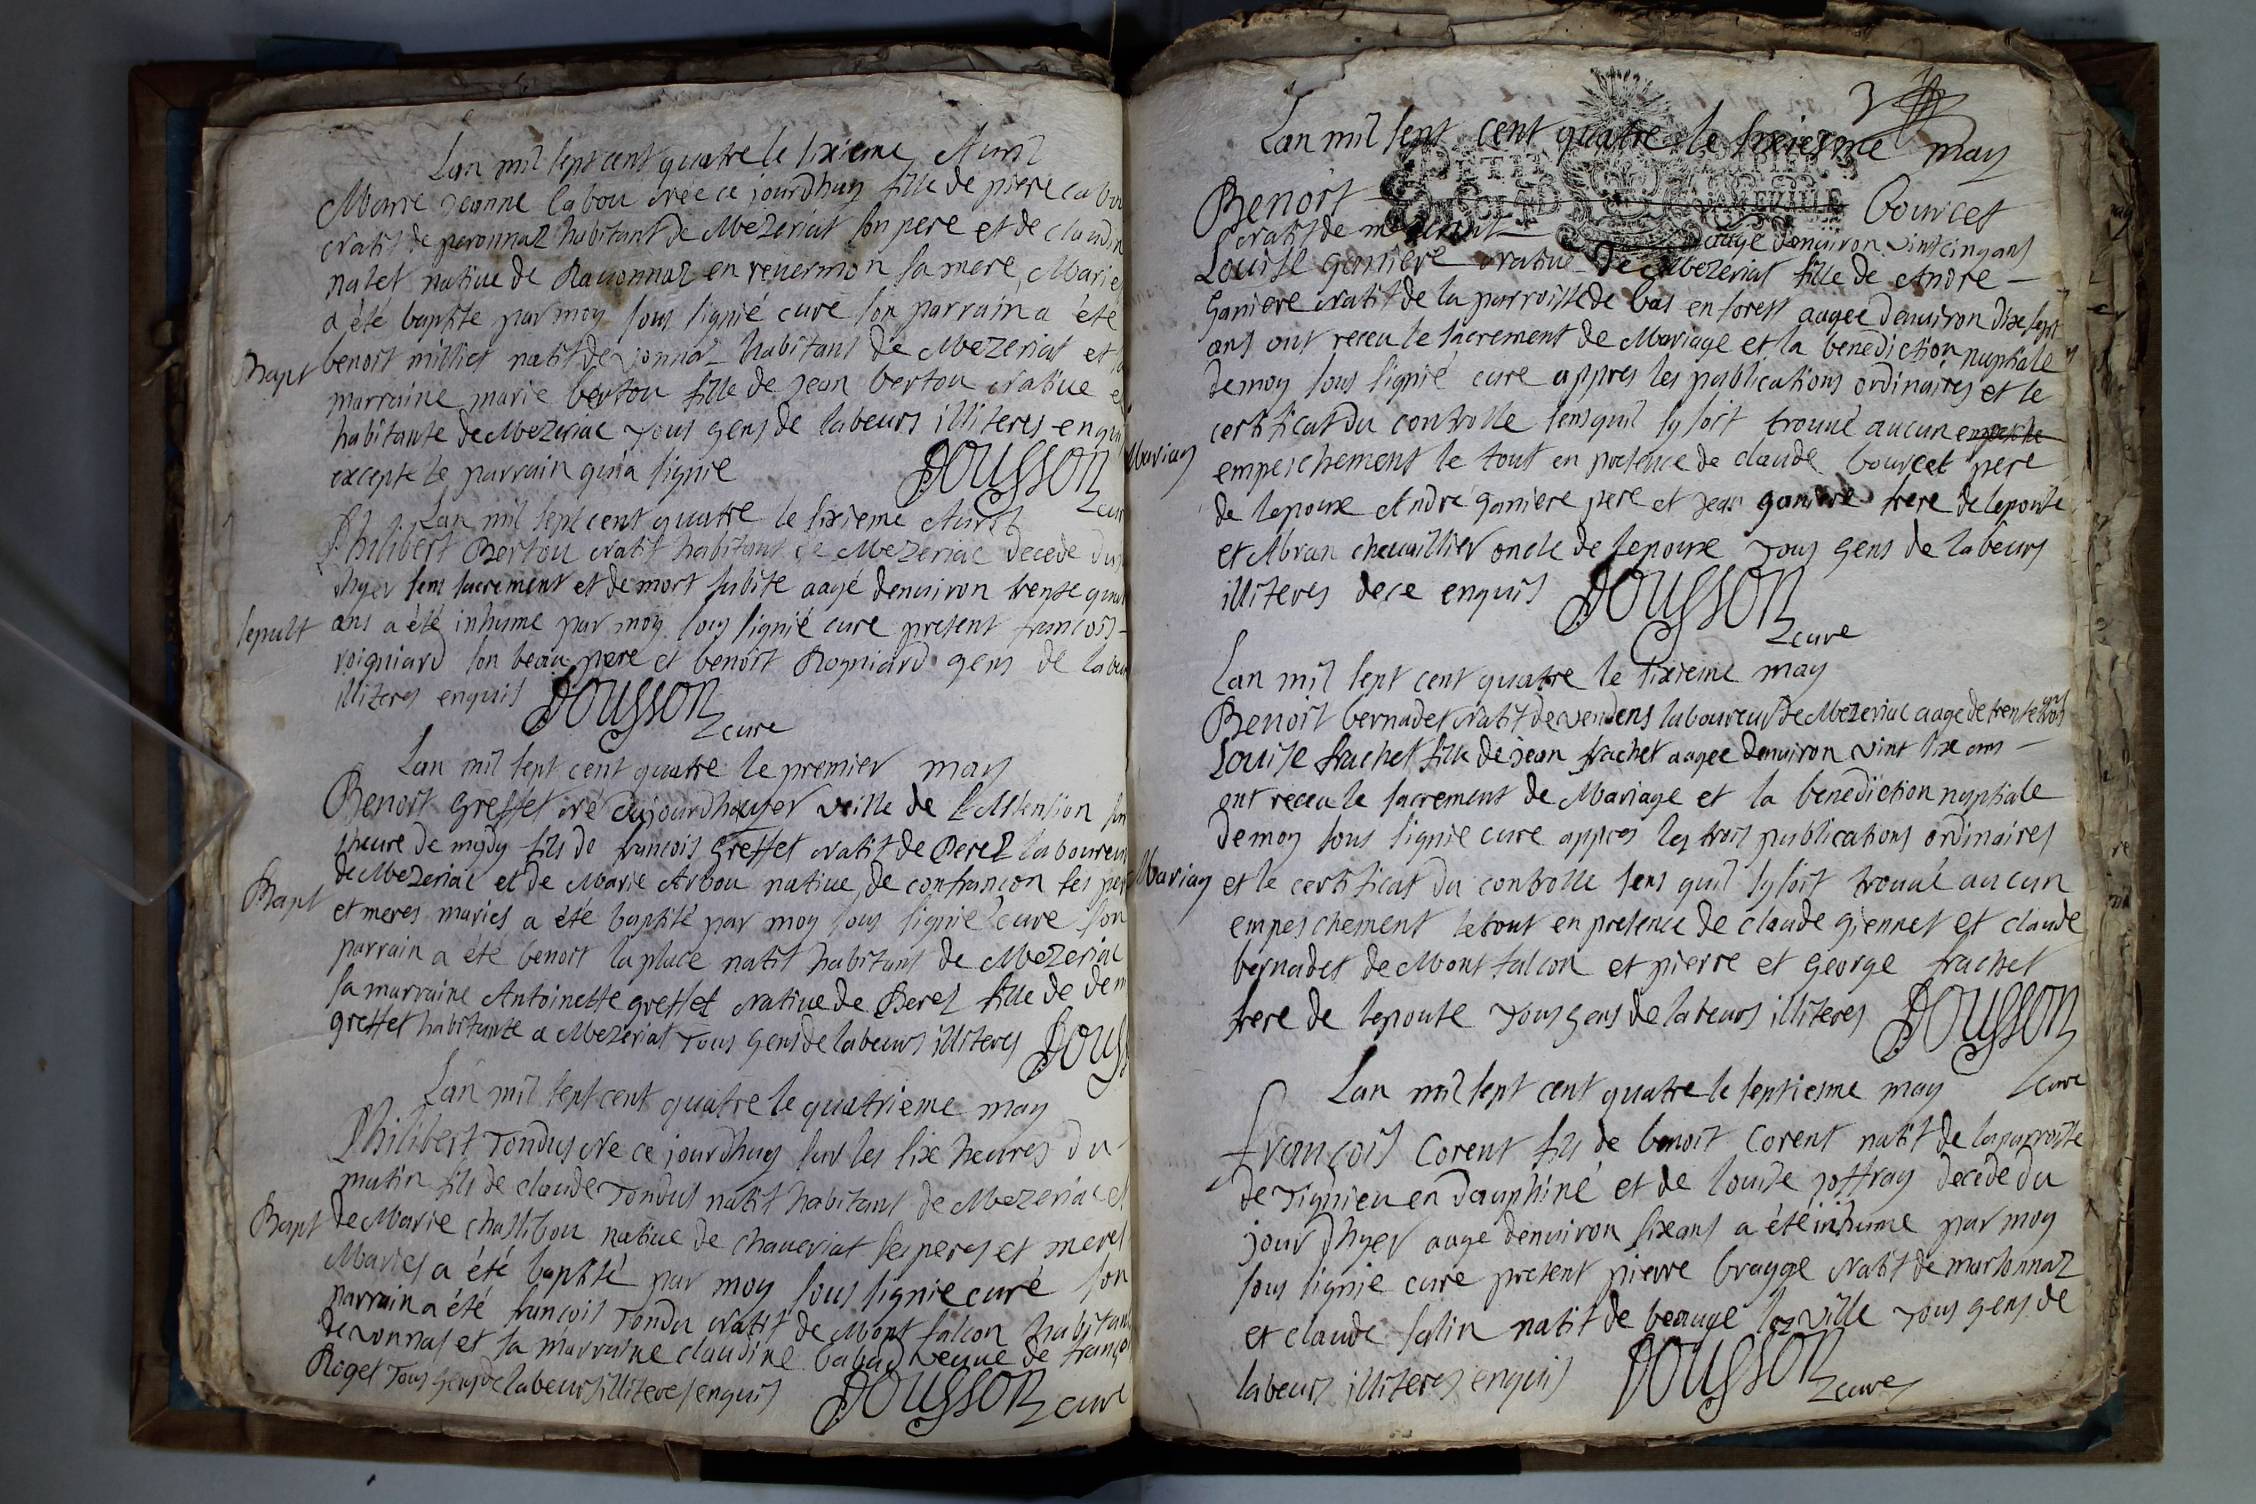 Lan mil sept cent quatre le sixieme Avril
Marie Jeanne labou née ce jourdhuy fille de piere labou
natif de peronnaz habitant de Mezeriat son pere et de claudin
natet native de Ravonnaz en revermon sa mere Maries
a été baptise par moy sous signié curé son parrain a été
Bapt benoit milliet natif de vonnaz habitant de Mezeriat et sa
marraine marie bertou fille de Jean bertou native et
habitante de Mezeriac tous gens de labeurs illiteres enquis
excepte le parrain qui a signie DOUSSON cure
Lan mil sept cent quatre le sixieme Avril
Philibert Bertou natif habitant de Mezeriac decede du
dhyer sens sacrement et de mort subite aagé denviron trente
sepult ans a été inhume par moy sous signié cure present francois
roigniard son beau pere et benoit Rogniard gens de labeur
illiteres enquis DOUSSON cure
Lan mil sept cent quatre le premier may
Benoit Greffet né aujourdhuyer veille de l'Assension sur
lheure de mydy fils de francois Greffet natif de Perez laboureur
de Mezeriac et de Marie Arbou native de confrancon ses peres
Bapt et meres maries a été baptisé par moy sous signie cure son
parrain a été benoit la place natif habitant de Mezeriac
sa marraine Antoinette greffet native de Perez fille de
greffet habitante a Mezeriat tous gens de labeurs illiteres DOUSS
Lan mil sept cent quatre le quatrieme may
Philibert Tondus né ce jourdhuy sur les six heures du
matin fils de claude Tondus natif habitant de Mezeriac et
Bapt de Marie chassibou native de chaveriat ses peres et meres
Maries a été baptisé par moy sous signie curé son
parrain a été francois Tondu natif de Mont falcon habitant
de vonnas et sa marraine claudine babad veuve de franço
Roget tous gens de labeurs illiteres enquis DOUSSON cure
3
Lan mil sept cent quatre le sixiesme may
Benoit Bourcet
natif de aagé denviron vint cinq ans
Louise ganiere native de Mezeriat fille de Andre
Ganiere natif de la parroisse de bas en forest aagee denviron dix sept
ans ont receu le sacrement de Mariage et la benediction nuptiale
de moy sous signié curé appres les publications ordinaires et le
certificat du controlle sens quil sy soit trouvé aucun empeche
Mariag empeschement le tout en presence de claude bourcet pere
de lepoux André ganiere pere et Jean ganiere frere de lepouse
et Abran chevaillier oncle de lepoux tous gens de labeurs
illiteres de ce enquis DOUSSON cure
Lan mil sept cent quatre le sixieme may
Benoit bernadet natif de vendens laboureur de Mezeriac aage de trente trois ans
Louise frachet fille de jean frachet aagee denviron vint six ans
ont receu le sacrement de Mariage et la benediction nuptiale
de moy sous signie cure appres les trois publications ordinaires
Mariag et le certificat du controlle sens quil sy soit trouvé aucun
empeschement le tout en presence de claude giennet et claude
bernadet de Mont falcon et pierre et george frachet
frere de lepouse tous gens de labeurs illiteres DOUSSON
Lan mil sept cent quatre le septiesme may cure
françois Corent fils de benoit Corent natif de la parroisse
de Tignieu en dauphiné et de louise joffray decede du
jour dhyer aage denviron six ans a été inhume par moy
sous signie curé present pierre brayge natif de marsonnaz
et claude salin natif de beauge la ville tous gens de
labeurs illiteres enquis DOUSSON cure